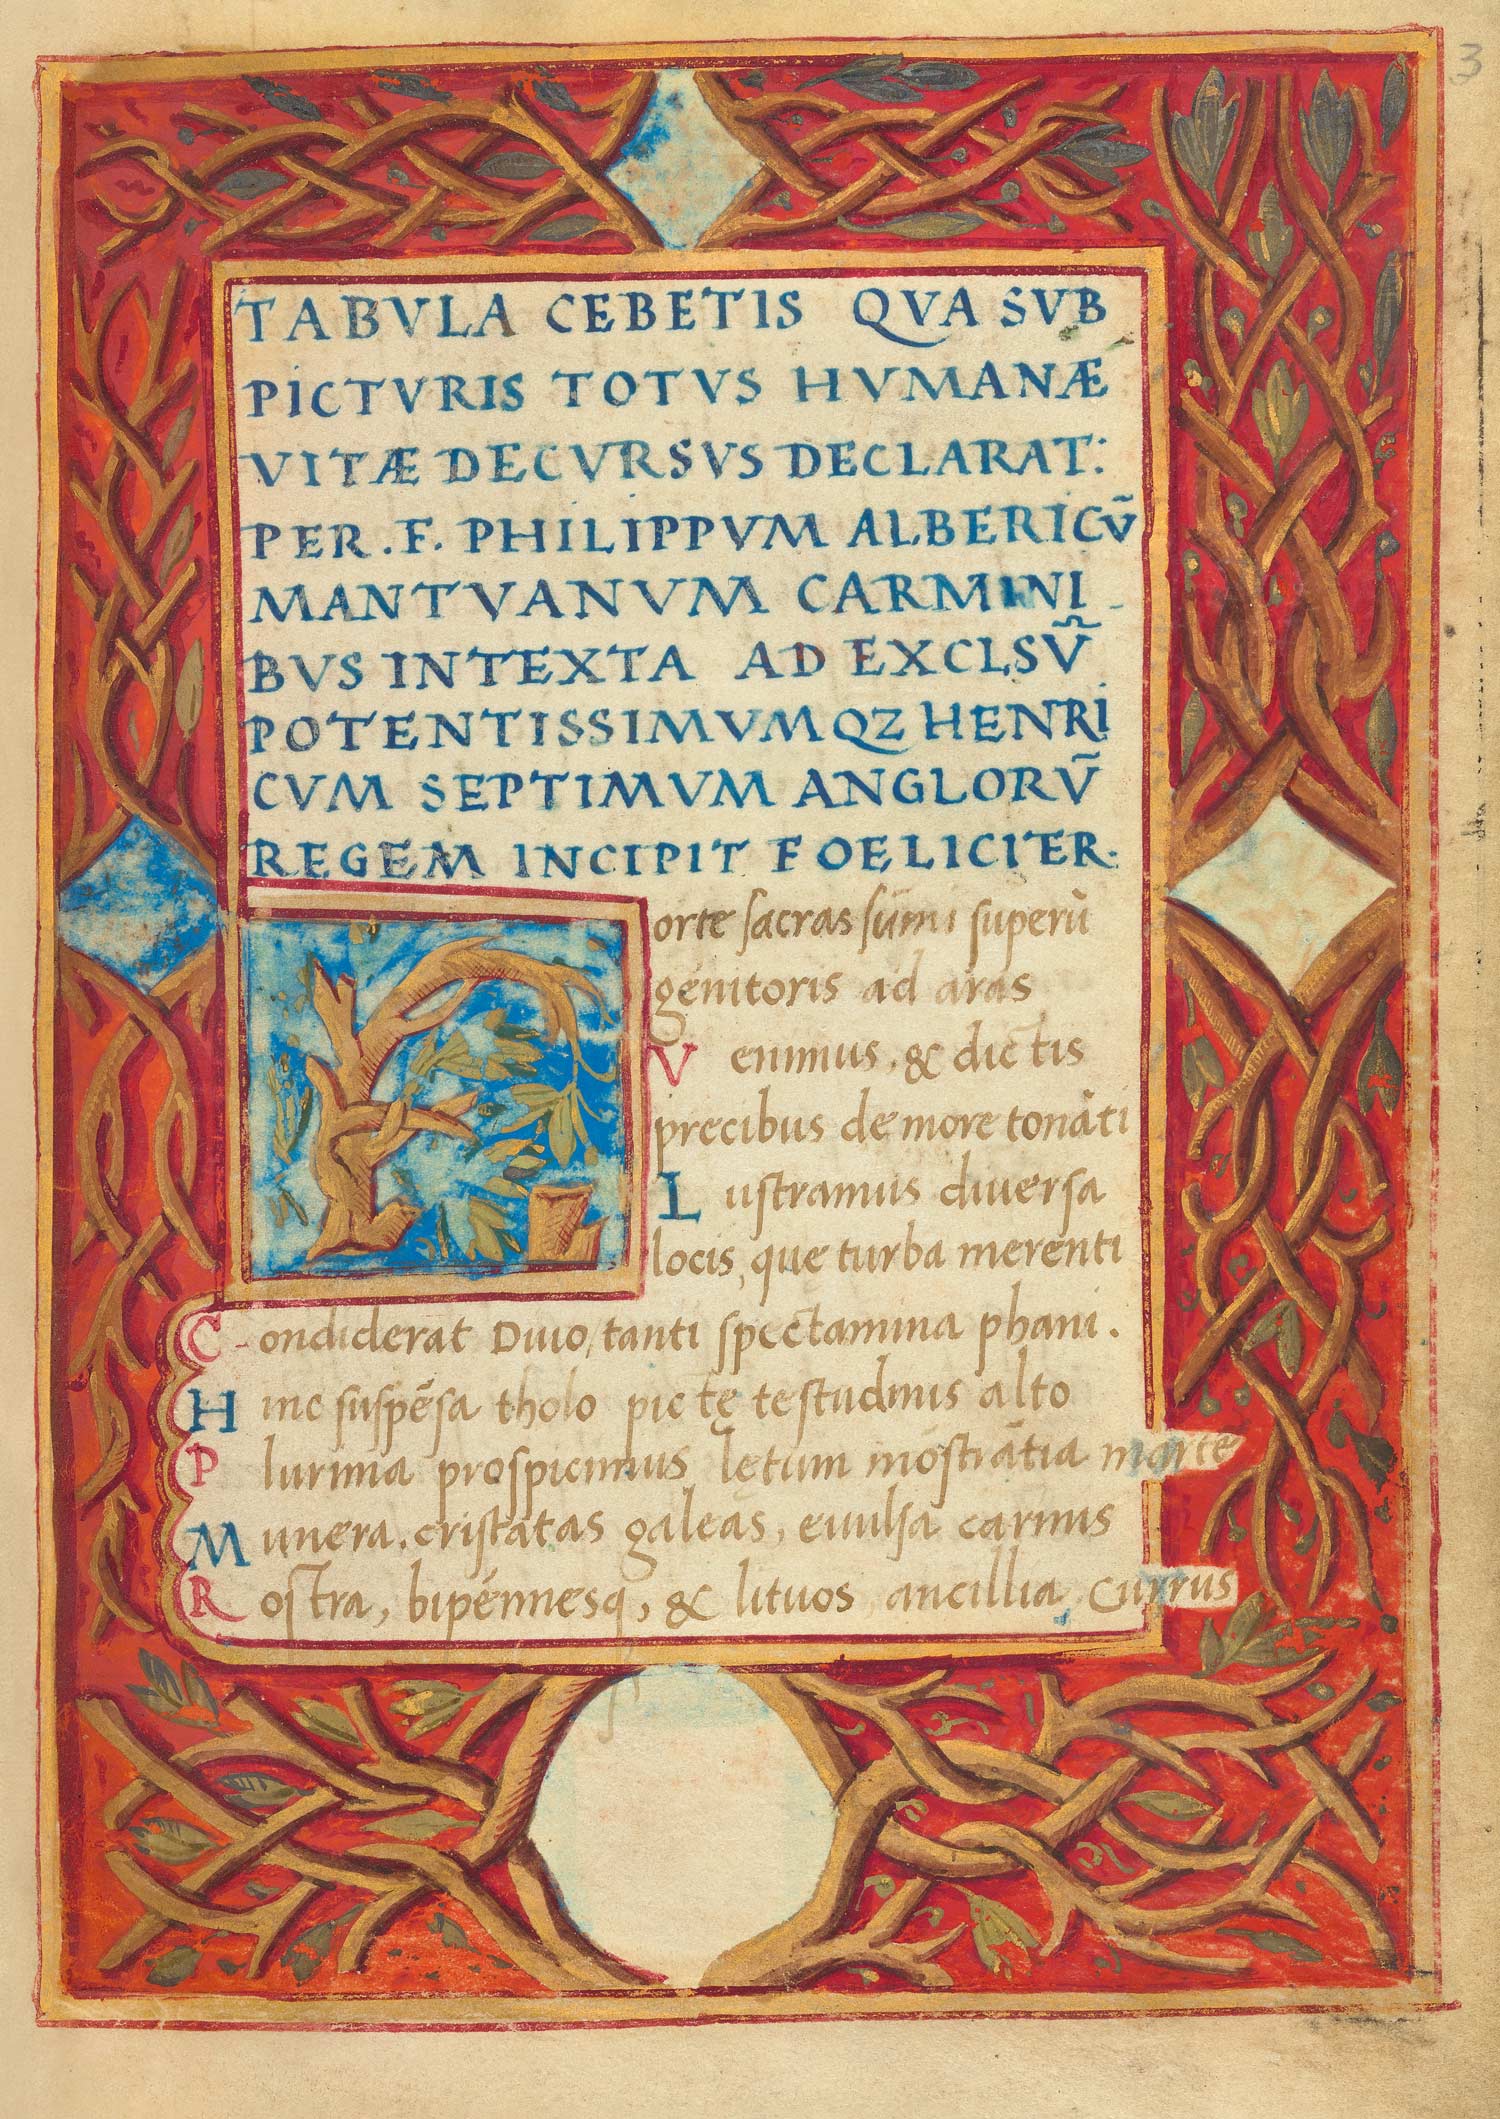 3
TABVLA CEBETIS QVA SVB
PICTVRIS TOTVS HVMANÆ
VITÆ DECVRSVS DECLARAT:
PER . F. PHILIPPVM ALBERICŨ
MANTVANVM CARMINI
BVS INTEXTA AD EXCLSŨ
POTENTISSIMVMQZ HENRI
CVM SEPTIMVM ANGLORŨ
REGEM INCIPIT FOELICITER.
Forte sacras sũmi superũ
genitoris ad aras
Venimus, & dictis
precibus de more tonãti
Lustramus diuersa
locis, que turba merenti
Condiderat Diuo, tanti spectamina phani.
Hinc suspẽsa tholo pictę testudinis alto
Plurima prospicimus lętum mõstrãtia morte
Munera. cristatas galeas, euulsa carinis
Rostra, bipennesq, & lituos, ancillia currus